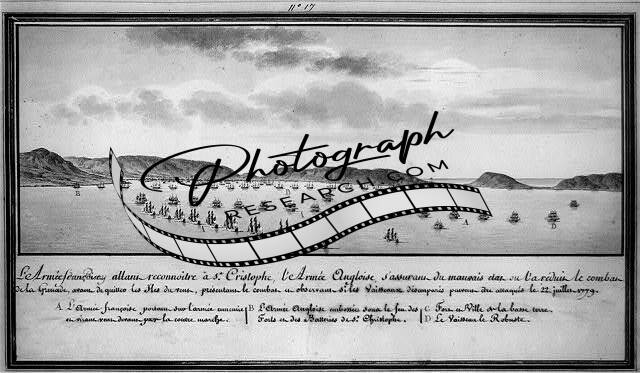 N° 17
Photograph
RESEARCH.COM
B
D
L'Armée françoise allant reconnoitre à St. Cristophe, l'Armée Angloise, s'assurant du mauvais état ou l'a réduit le combat
de la Grenade, avant de quitter les Isles du vent, présentant le combat et observant si les Vaisseaux désemparés peuvent être attaqués le 22. juillet 1779.
A L'Armée françoise portant sur l'armée ennemie
et virant vent devant par la contre marche.
B L'Armée Angloise embossée sous le feu des
Forts et des Batteries de St. Christophe.
C Fort et Ville de la basse terre.
D Le Vaisseau le Robuste.